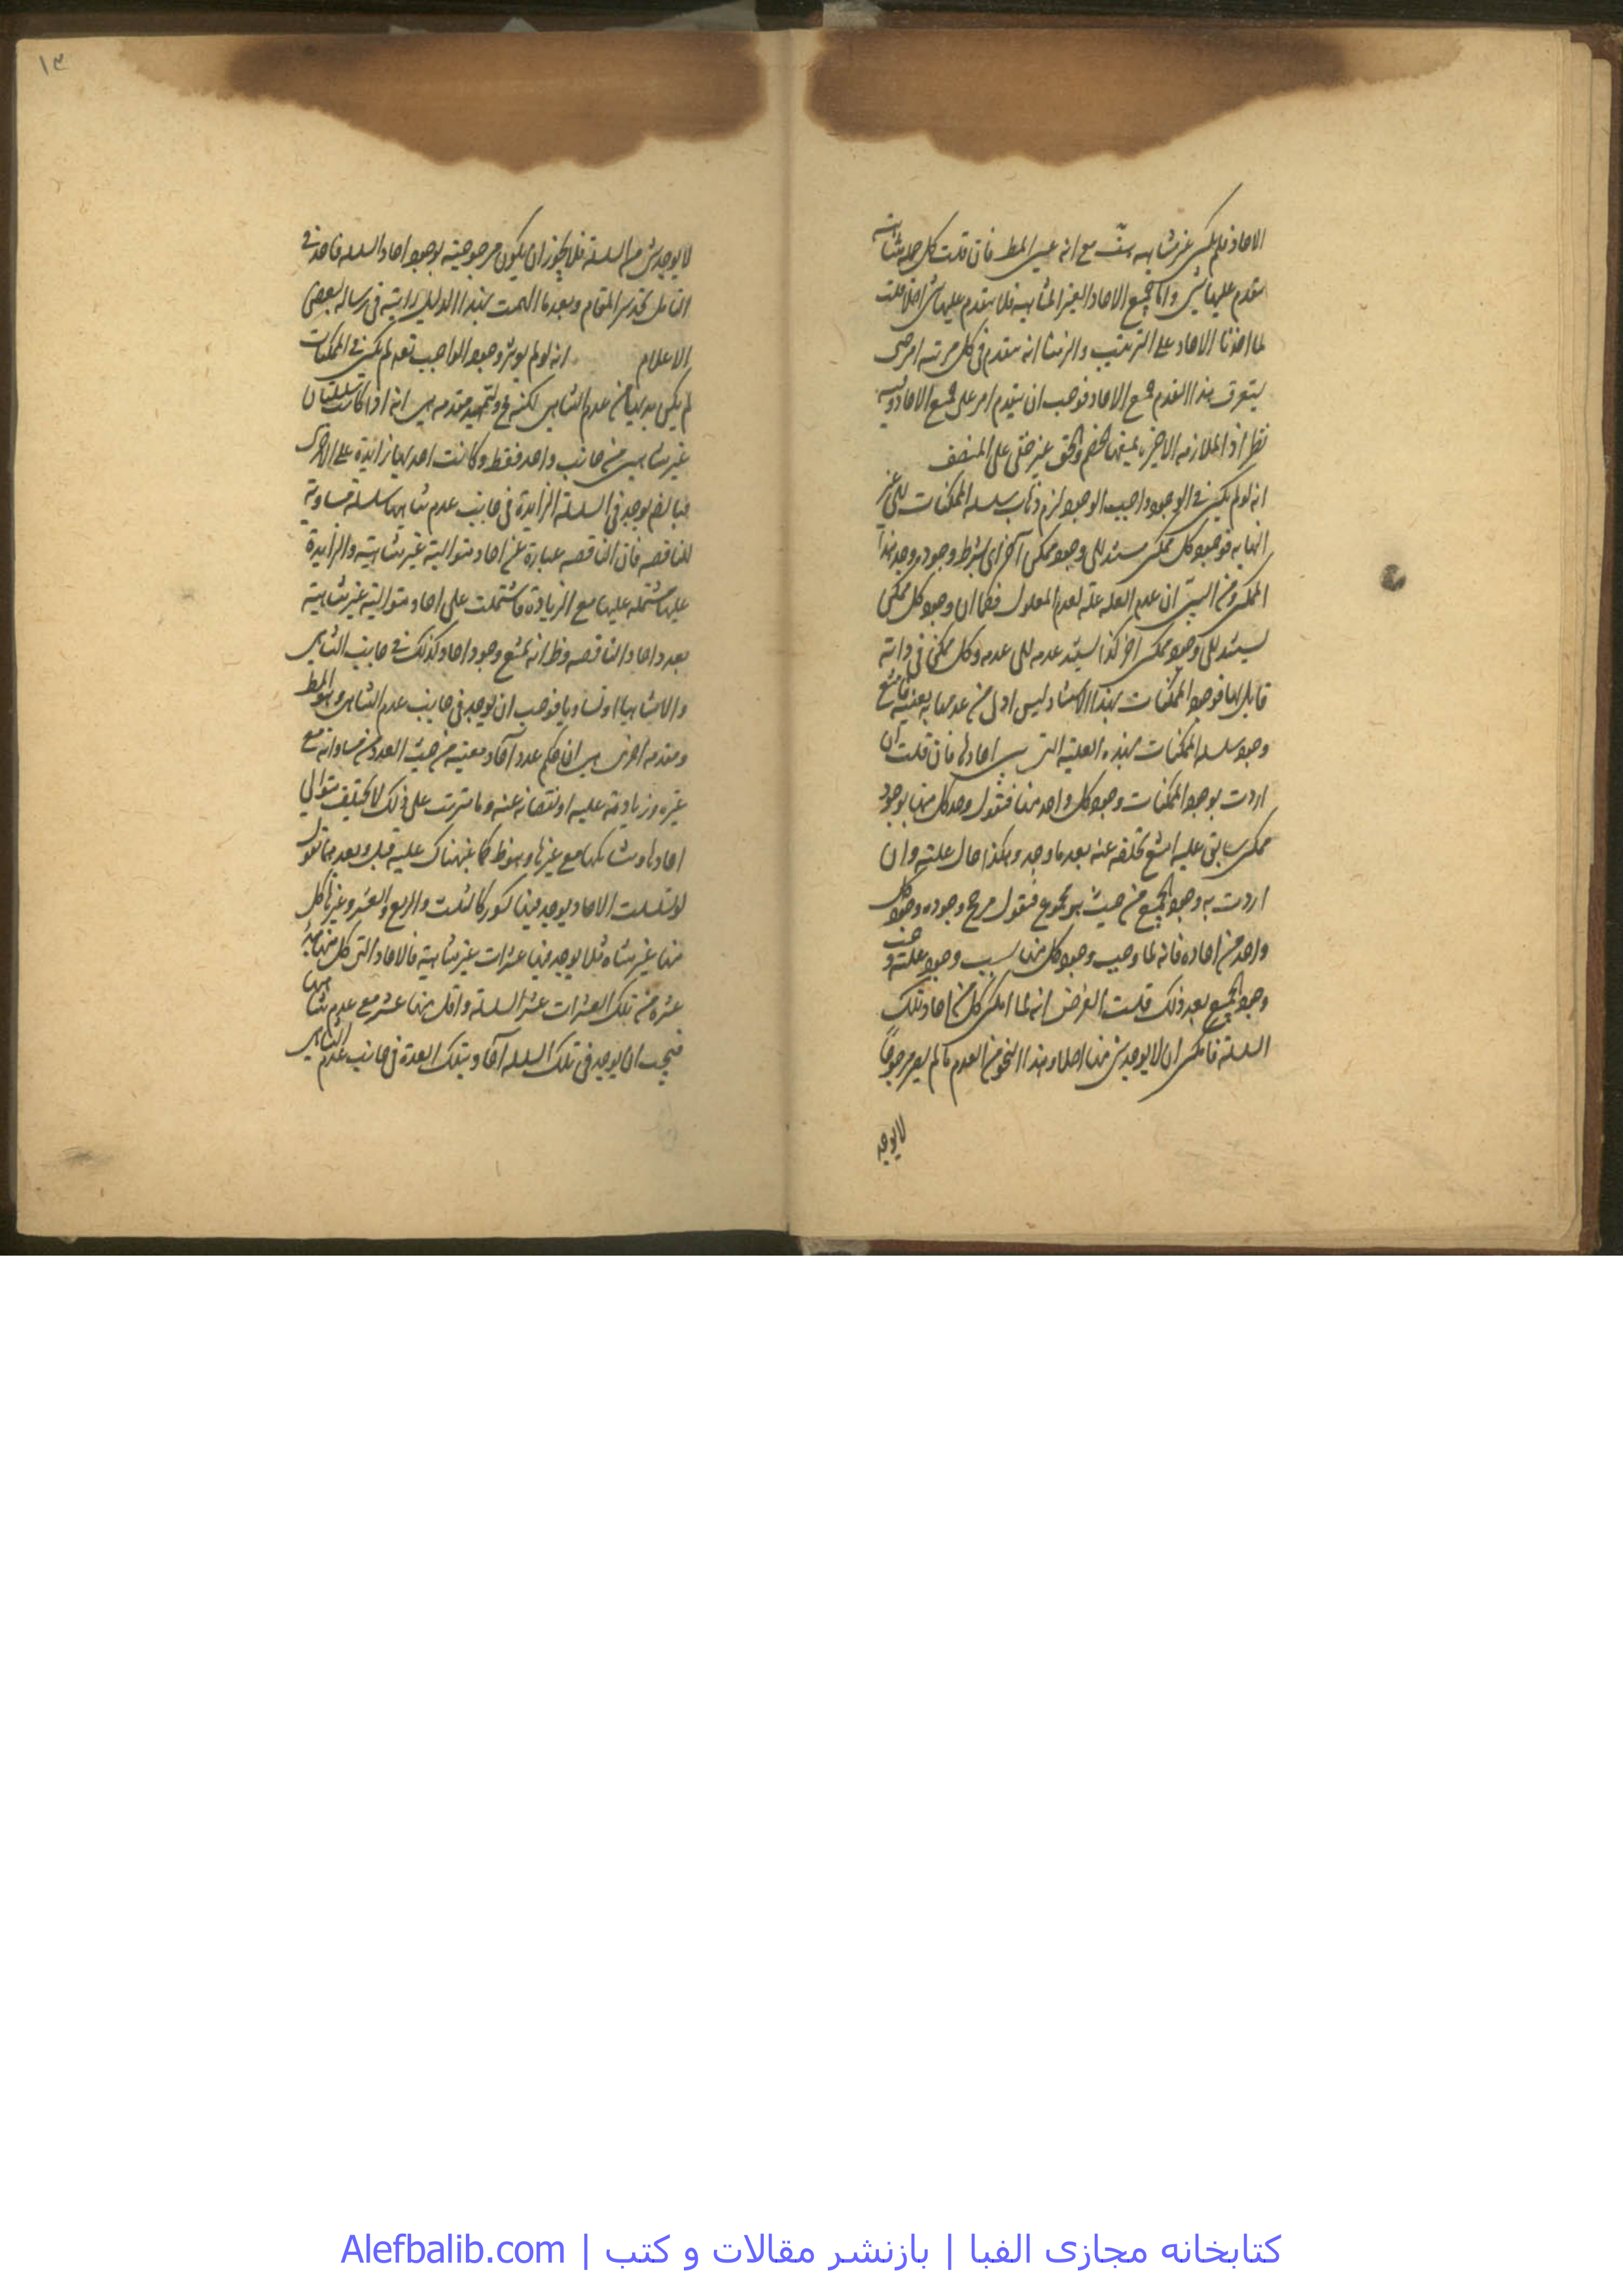 الاحاد فلم يكن غير متناهيه هف مع انه عين المط فان قلت كل جمله متناهيه
يتقدم عليها شئ واما جميع الاحاد الغير المتناهيه فلا يتقدم عليها شئ اصلا قلت
لما اخذنا الاحاد على الترتيب والزمنا انه يتقدم فى كل مرتبه امر حتى
يتعرق هذا التقدم جميع الاحاد فوجب ان يتقدم امر على جميع الاحاد وفيه
نظر اذ الملازمه الاخيره يمنعها الخصم والحق غير خفى على المنصف
انه لو لم يكن فى الوجود واجب الوجود لزم ذهاب سلسله الممكنات الى غير
النهايه فوجود كل ممكن مستند الى وجود ممكن آخر اى بشرط وجوده وجد هذا
الممكن ومن البين ان عدم العله علة لعدم المعلول فكما ان وجود كل ممكن
يستند الى وجود ممكن آخر كذا يستند عدمه الى عدمه وكل ممكن فى ذاته
قابل لهما فوجود الممكنات بهذا الاستناد ليس اولى من عدمها به بعينه فامتنع
وجود سلسله الممكنات بهذه العلية التى هى احادها فان قلت ان
اردت بوجود الممكنات وجود كل واحد منها فنقول وجد كل منها بوجود
ممكن سابق عليه امتنع تخلفه عنه بعد ما وجد وهكذا حال علته وان
اردت به وجود الجميع من حيث هو مجموع فنقول مرجح وجوده وجود كل
واحد من احاده فانه لما وجب وجود كل منها بسبب وجود علته وجب
وجود الجميع بعد ذلك قلت الغرض انه لما امكن كل من احاد تلك
السلسلة فامكن ان لا يوجد شئ منها اصلا وهذا النحو من العدم ما لم يصر مرجوحاً
لا يوجد
١٣
لا يوجد شئ من السلسلة فلا يجوز ان يكون مرجوحيته بوجود احاد السلسله
التامل تجد سر المقام وبعد ما الهمت بهذا الدليل رايته فى رساله بعض
الاعلام انه لو لم يوجد وجود الواجب تعه لم يكن فى الممكنات
لم يكن بد لها من عدم التناهى لكنه مح ولنمهد مقدمه هى انه اذا كانت سلسلتان
غير متناهى من جانب واحد فقط وكانت احديهما زائدة على الاخرى
فبالضرورة يوجد فى السلسلة الزائدة فى جانب عدم تناهيها سلسلة مساوية
للناقصه فان الناقصه عبارة عن احاد متوالية غير متناهية والزايدة
عليها مشتمله عليها مع الزيادة فاشتملت على احاد متوالية غير متناهية
بعدد احاد الناقصه وظ انه يمتنع وجود احاد كذلك فى جانب التناهى
والا تناهيا او تساويا فوجب ان يوجد فى جانب عدم التناهى وهو المط
ومقدمه اخرى هى ان حكم عدد آحاد معينة من حيث العدد من مساواته مع
غيره وزيادته عليه او نقصانه عنه وما يترتب على ذلك لا يختلف بتوالى
احادها وتشابكها مع غيرها وهو ظ كما نبهناك عليه قبل وبعدهما نقول
لو تسلسلت الاحاد يوجد فيها كسور كالثلث والربع والعشر وغيرها كل
منها غير متناه مثلا يوجد فيها عشرات غير متناهية فالاحاد التى كل منها
عشره من تلك العشرات عشر السلسلة واقل منها عشر مع عدم تناهيها
فيجب ان يوجد فى تلك السلسله آحاد بتلك العدة فى جانب عدم التناهى
كتابخانه مجازی الفبا | بازنشر مقالات و کتب | Alefbalib.com